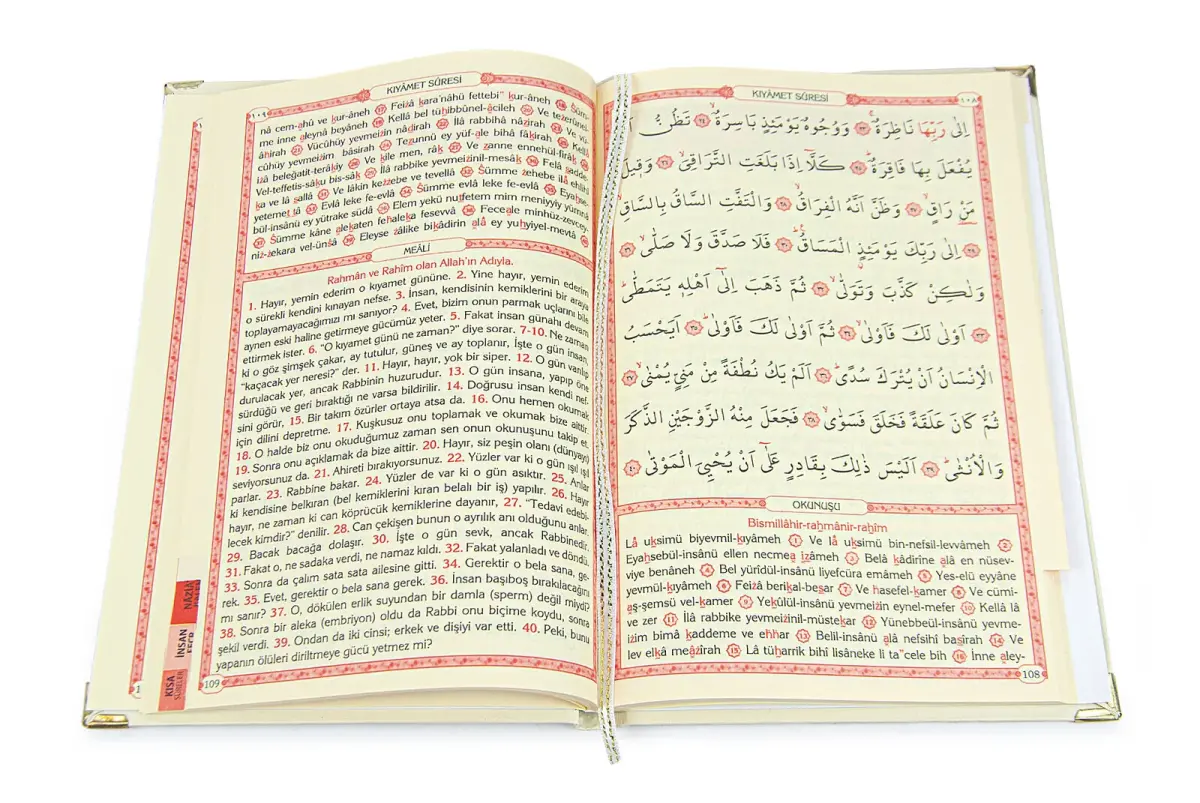 KIYÂMET SÛRESİ
١٠٨
اِلٰى رَبِّهَا نَاظِرَةٌۚ ﴿٢٣﴾ وَوُجُوهٌ يَوْمَئِذٍ بَاسِرَةٌۙ ﴿٢٤﴾ تَظُنُّ اَنْ
يُفْعَلَ بِهَا فَاقِرَةٌۜ ﴿٢٥﴾ كَلَّٓا اِذَا بَلَغَتِ التَّرَاقِيَۙ ﴿٢٦﴾ وَق۪يلَ
مَنْ رَاقٍۙ ﴿٢٧﴾ وَظَنَّ اَنَّهُ الْفِرَاقُۙ ﴿٢٨﴾ وَالْتَفَّتِ السَّاقُ بِالسَّاقِۙ
﴿٢٩﴾ اِلٰى رَبِّكَ يَوْمَئِذٍ الْمَسَاقُۜ ﴿٣٠﴾ فَلَا صَدَّقَ وَلَا صَلّٰىۙ ﴿٣١﴾
وَلٰكِنْ كَذَّبَ وَتَوَلّٰىۙ ﴿٣٢﴾ ثُمَّ ذَهَبَ اِلٰٓى اَهْلِه۪ يَتَمَطّٰىۜ
﴿٣٣﴾ اَوْلٰى لَكَ فَاَوْلٰىۙ ﴿٣٤﴾ ثُمَّ اَوْلٰى لَكَ فَاَوْلٰىۜ ﴿٣٥﴾ اَيَحْسَبُ
الْاِنْسَانُ اَنْ يُتْرَكَ سُدًىۜ ﴿٣٦﴾ اَلَمْ يَكُ نُطْفَةً مِنْ مَنِيٍّ يُمْنٰىۙ ﴿٣٧﴾
ثُمَّ كَانَ عَلَقَةً فَخَلَقَ فَسَوّٰىۙ ﴿٣٨﴾ فَجَعَلَ مِنْهُ الزَّوْجَيْنِ الذَّكَرَ
وَالْاُنْثٰىۜ ﴿٣٩﴾ اَلَيْسَ ذٰلِكَ بِقَادِرٍ عَلٰٓى اَنْ يُحْيِيَ الْمَوْتٰى ﴿٤٠﴾
OKUNUŞU
Bismillâhir-rahmânir-rahîm
Lâ uksimü biyevmil-kıyâmeh 1 Ve lâ uksimü bin-nefsil-levvâmeh 2
Eyahsebül-insânü ellen necmea ızâmeh 3 Belâ kâdirîne alâ en nüsev-
viye benâneh 4 Bel yürîdül-insânü liyefcüra emâmeh 5 Yes-elü eyyâne
yevmül-kıyâmeh 6 Feizâ berikal-besar 7 Ve hasefel-kamer 8 Ve cümi-
aş-şemsü vel-kamer 9 Yekûlül-insânü yevmeizin eynel-mefer 10 Kellâ lâ
ve zer 11 İlâ rabbike yevmeizinil-müstekar 12 Yünebbeül-insânü yevme-
izim bimâ kaddeme ve ehhar 13 Belil-insânü alâ nefsihî basîrah 14 Ve
lev elkâ meâzîrah 15 Lâ tüharrik bihî lisâneke li ta"cele bih 16 İnne aley-
108
KIYÂMET SÛRESİ
١٠٩
nâ cem-ahû ve kur-âneh 17 Feizâ kara'nâhü fettebi" kur-âneh 18 Süm-
me inne aleynâ beyâneh 19 Kellâ bel tühıbbûnel-âcileh 20 Ve tezerûnel-
âhirah 21 Vücûhüy yevmeizin nâdirah 22 İlâ rabbihâ nâzirah 23 Ve vü-
cûhüy yevmeizim bâsirah 24 Tezunnü ey yüf-ale bihâ fâkirah 25 Kellâ
izâ beleğatit-terâkıy 26 Ve kîle men, râk 27 Ve zanne ennehül-firâk 28
Vel-teffetis-sâku bis-sâk 29 İlâ rabbike yevmeizinil-mesâk 30 Felâ sadde-
ka ve lâ sallâ 31 Ve lâkin kezzebe ve tevellâ 32 Sümme zehebe ilâ ehlihî
yetemettâ 33 Evlâ leke fe-evlâ 34 Sümme evlâ leke fe-evlâ 35 Eyahse-
bül-insânü ey yütrake südâ 36 Elem yekü nutfetem mim meniyyiy yümnâ
37 Sümme kâne alekaten fehaleka fesevvâ 38 Feceale minhüz-zevcey-
niz-zekara vel-ünsâ 39 Eleyse zâlike bikâdirin alâ ey yuhyiyel-mevtâ 40
MEÂLİ
Rahmân ve Rahîm olan Allah'ın Adıyla.
1. Hayır, yemin ederim o kıyamet gününe. 2. Yine hayır, yemin ederim
o sürekli kendini kınayan nefse. 3. İnsan, kendisinin kemiklerini bir araya
toplayamayacağımızı mı sanıyor? 4. Evet, bizim onun parmak uçlarını bile
aynen eski haline getirmeye gücümüz yeter. 5. Fakat insan günahı devam
ettirmek ister. 6. "O kıyamet günü ne zaman?" diye sorar. 7-10. Ne zaman
ki o göz şimşek çakar, ay tutulur, güneş ve ay toplanır, İşte o gün insan,
"kaçacak yer neresi?" der. 11. Hayır, hayır, yok bir siper. 12. O gün varılıp
durulacak yer, ancak Rabbinin huzurudur. 13. O gün insana, yapıp öne
sürdüğü ve geri bıraktığı ne varsa bildirilir. 14. Doğrusu insan kendi nef-
sini görür, 15. Bir takım özürler ortaya atsa da. 16. Onu hemen okumak
için dilini depretme. 17. Kuşkusuz onu toplamak ve okumak bize aittir.
18. O halde biz onu okuduğumuz zaman sen onun okunuşunu takip et.
19. Sonra onu açıklamak da bize aittir. 20. Hayır, siz peşin olanı (dünyayı)
seviyorsunuz da. 21. Ahireti bırakıyorsunuz. 22. Yüzler var ki o gün ışıl ışıl
parlar. 23. Rabbine bakar. 24. Yüzler de var ki o gün asıktır. 25. Anlar
ki kendisine belkıran (bel kemiklerini kıran belalı bir iş) yapılır. 26. Hayır
hayır, ne zaman ki can köprücük kemiklerine dayanır, 27. "Tedavi edebi-
lecek kimdir?" denilir. 28. Can çekişen bunun o ayrılık anı olduğunu anlar.
29. Bacak bacağa dolaşır. 30. İşte o gün sevk, ancak Rabbinedir.
31. Fakat o, ne sadaka verdi, ne namaz kıldı. 32. Fakat yalanladı ve döndü,
33. Sonra da çalım sata sata ailesine gitti. 34. Gerektir o bela sana, ge-
rek. 35. Evet, gerektir o bela sana gerek. 36. İnsan başıboş bırakılacağını
mı sanır? 37. O, dökülen erlik suyundan bir damla (sperm) değil miydi?
38. Sonra bir aleka (embriyon) oldu da Rabbi onu biçime koydu, sonra
şekil verdi. 39. Ondan da iki cinsi; erkek ve dişiyi var etti. 40. Peki, bunu
yapanın ölüleri diriltmeye gücü yetmez mi?
109
İNSAN
KISA
SÛRELER